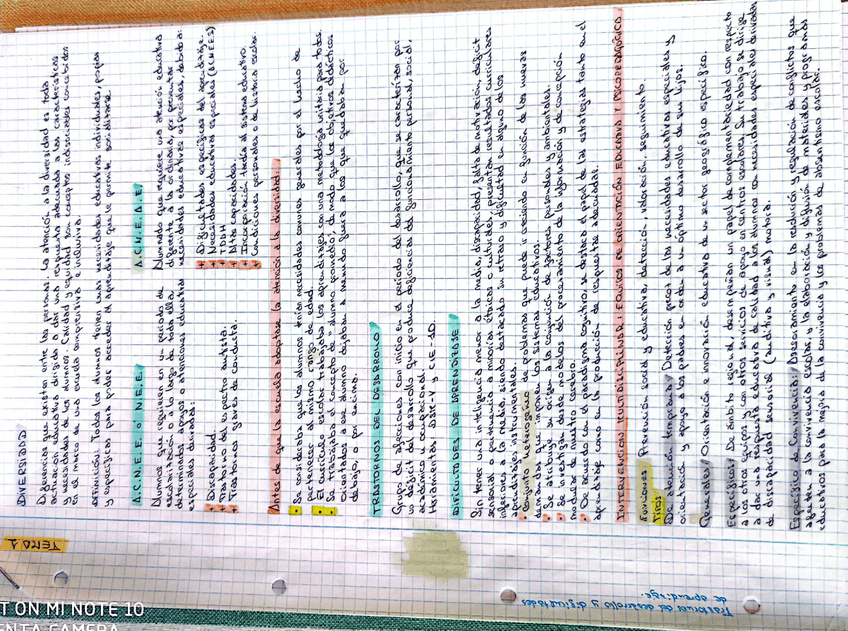 Trastornos del desarrollo y dificultades
de aprendizaje.
TEMA 1
DIVERSIDAD
Diferencias que existen entre las personas. La atención a la diversidad es toda
actuación educativa dirigida a dar una respuesta adecuada a las características
y necesidades de los alumnos. Calidad y equidad son conceptos indisociables concebidos
en el marco de una escuela comprensiva e inclusiva.
DEFINICIÓN: Todos los alumnos tienen unas necesidades educativas individuales, propias
y específicas para poder acceder al aprendizaje que le permite socializarse.
A.C.N.E.E. O N.E.E.
Alumnos que requieren en un periodo de
escolarización o a lo largo de toda ella
determinados apoyos o atenciones educativas
especiales derivadas:
+ Discapacidad.
+ Trastorno del espectro autista.
+ Trastornos graves de conducta.
A.C.N.E.A.E
Alumnado que requiere una atención educativa
diferente a la ordinaria, por presentar
necesidades educativas especiales, debido a:
+ Dificultades específicas del aprendizaje.
+ Necesidades educativas especiales (ACNEEs)
+ TDAH
+ Altas capacidades.
+ Incorporación tardía al sistema educativo.
+ Condiciones personales o de historia escolar.
Antes de que la escuela adoptase la atención a la diversidad:
Se consideraba que los alumnos tenían necesidades comunes generales por el hecho de
pertenecer al mismo rango de edad.
El currículo escolar trabajaba los aprendizajes con una metodología unitaria para todos.
Se trabajaba el concepto de "alumno promedio", de modo que los objetivos didácticos
orientados a ese alumno dejaban a menudo fuera a los que quedaban por
debajo, o por encima.
TRASTORNOS DEL DESARROLLO
Grupo de afecciones con inicio en el período del desarrollo, que se caracterizan por
un déficit del desarrollo que produce deficiencias del funcionamiento personal, social,
académico u ocupacional.
Herramientas DSM-V y CIE-10.
DIFICULTADES DE APRENDIZAJE
Sin tener una inteligencia menor a la media, discapacidad, falta de motivación, déficit
sensorial, o pertenencia a minorías étnicas o culturales, presentan resultados curriculares
inferiores a la media, siendo destacado su retraso y dificultad en alguno de los
aprendizajes instrumentales.
Conjunto heterogéneo de problemas que puede ir creciendo en función de las nuevas
demandas que imponen los sistemas educativos.
Se atribuye su origen a la conjunción de factores personales y ambientales.
Se investiga desde modelos del procesamiento de la información y de concepción
modular de nuestro cerebro.
De acuerdo con el paradigma cognitivo, se destaca el papel de las estrategias tanto en el
aprendizaje como en la producción de respuestas adecuadas.
INTERVENCIÓN MULTIDISCIPLINAR: EQUIPOS DE ORIENTACIÓN EDUCATIVA Y PSICOPEDAGÓGICA
Funciones: Prevención social y educativa, detección, valoración, seguimiento.
Tipos
De atención temprana// Detección precoz de las necesidades educativas especiales y
orientación y apoyo a los padres en orden a un óptimo desarrollo de sus hijos.
Generales// Orientación e innovación educativa de un sector geográfico específico.
Específicos// De ámbito regional, desempeñan un papel de complementariedad con respecto
a los otros equipos y con otros servicios de apoyo a centros escolares. Su trabajo se dirige
a dar una respuesta educativa de calidad a los alumnos con necesidades especiales derivadas
de discapacidad sensorial (auditiva y visual) motora.
Específico de Convivencia// Asesoramiento en la resolución y regulación de conflictos que
afecten a la convivencia escolar, y la elaboración y difusión de materiales y programas
educativos para la mejora de la convivencia y los problemas de absentismo escolar.
T ON MI NOTE 10